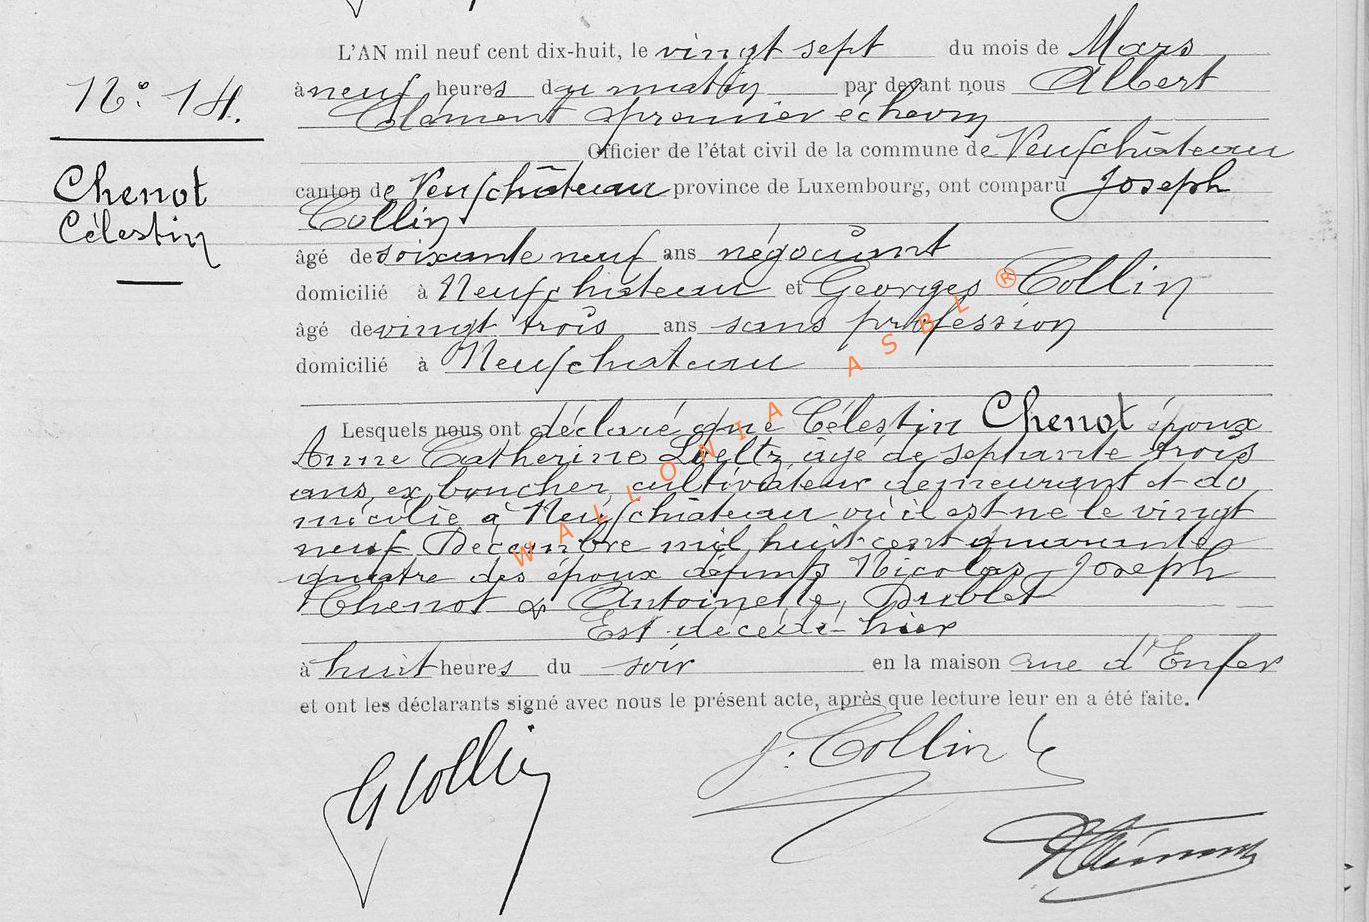 L'AN mil neuf cent dix-huit, le vingt sept du mois de Mars
N° 14.
à neuf heures du matin par devant nous Albert
Clément premier échevin
Officier de l'état civil de la commune de Neufchâteau
Chenot
Célestin
canton de Neufchâteau province de Luxembourg, ont comparu Joseph
Collin
âgé de soixante neuf ans négociant
domicilié à Neufchâteau et Georges Collin
âgé de vingt trois ans sans profession
domicilié à Neufchateau
WALLONIA ASBL ®
Lesquels nous ont déclaré que Célestin Chenot époux
Anne Catherine Loeltz, âgé de septante trois
ans, ex boucher, cultivateur demeurant et do
micilié à Neufchâteau où il est né le vingt
neuf Décembre mil huit cent quarante
quatre des époux défunts Nicolas Joseph
Chenot & Antoinette
Est décédé hier
à huit heures du soir en la maison rue d'Enfer
et ont les déclarants signé avec nous le présent acte, après que lecture leur en a été faite.
G Collin
J. Collin
AClément